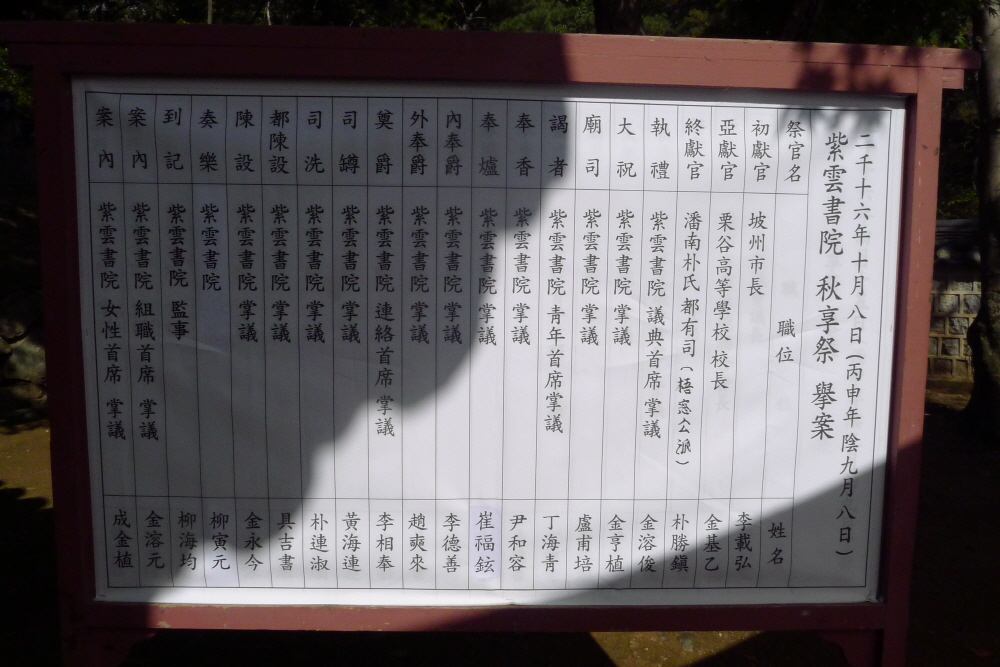 二千十六年十月八日(丙申年 陰九月八日)
紫雲書院 秋享祭 擧案
祭官名 職位 姓名
初獻官 坡州市長 李載弘
亞獻官 栗谷高等學校 校長 金基乙
終獻官 潘南朴氏 都有司(梧窓公派) 朴勝鎭
執禮 紫雲書院 議典首席 掌議 金溶俊
大祝 紫雲書院 掌議 金亨植
廟司 紫雲書院 掌議 盧甫培
謁者 紫雲書院 靑年首席 掌議 丁海靑
奉香 紫雲書院 掌議 尹和容
奉爐 紫雲書院 掌議 崔福鉉
內奉爵 紫雲書院 掌議 李德善
外奉爵 紫雲書院 掌議 趙奭來
奠爵 紫雲書院 連絡首席 掌議 李相奉
司罇 紫雲書院 掌議 黃海連
司洗 紫雲書院 掌議 朴連淑
都陳設 紫雲書院 掌議 具吉書
陳設 紫雲書院 掌議 金永今
奏樂 紫雲書院 柳寅元
到記 紫雲書院 監事 柳海均
案內 紫雲書院 組職首席 掌議 金溶元
案內 紫雲書院 女性首席 掌議 成金植